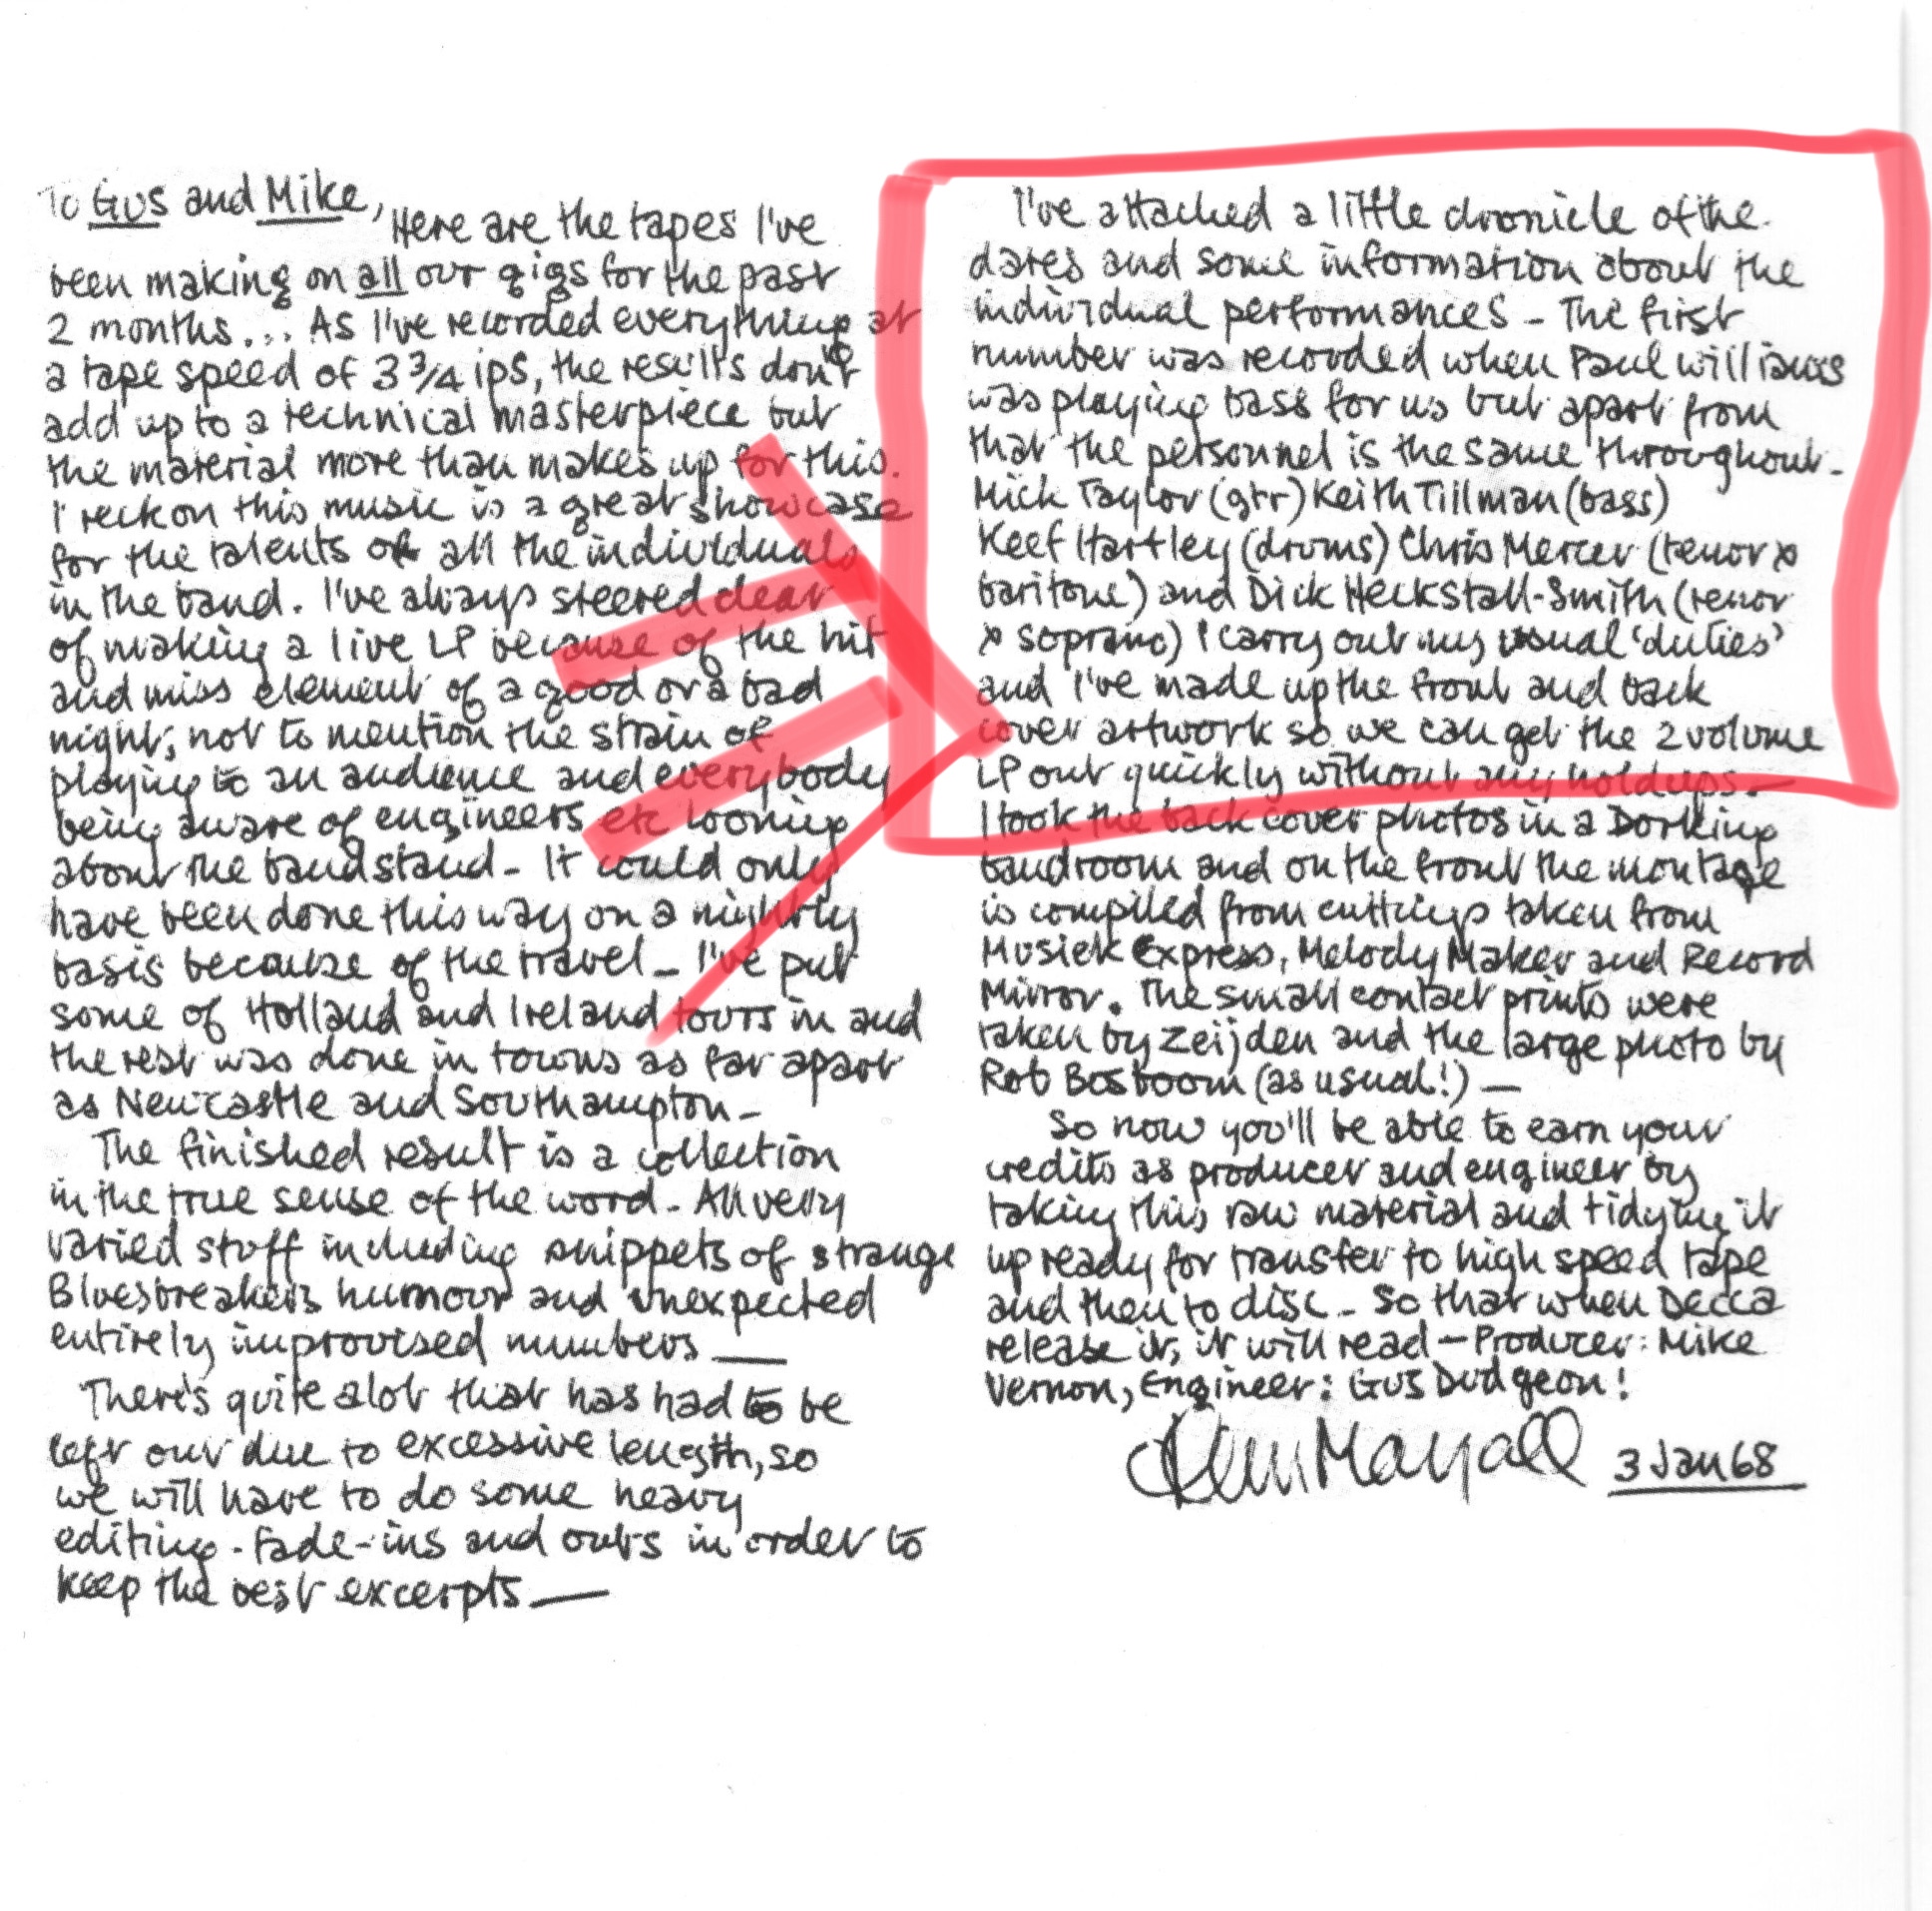 To Gus and Mike,
Here are the tapes I've
been making on all our gigs for the past
2 months... As I've recorded everything at
a tape speed of 3 3/4 ips, the results don't
add up to a technical masterpiece but
the material more than makes up for this.
I reckon this music is a great showcase
for the talents of all the individuals
in the band. I've always steered clear
of making a live LP because of the hit
and miss element of a good or a bad
night, not to mention the strain of
playing to an audience and everybody
being aware of engineers etc looming
about the bandstand - It could only
have been done this way on a nightly
basis because of the travel - I've put
some of Holland and Ireland tours in and
the rest was done in towns as far apart
as Newcastle and Southampton -
The finished result is a collection
in the true sense of the word - All very
varied stuff including snippets of strange
Bluesbreakers humour and unexpected
entirely improvised numbers —
There's quite alot that has had to be
left out due to excessive length, so
we will have to do some heavy
editing - fade-ins and outs in order to
keep the best excerpts —
I've attached a little chronicle of the
dates and some information about the
individual performances - The first
number was recorded when Paul Williams
was playing bass for us but apart from
that the personnel is the same throughout -
Mick Taylor (gtr) Keith Tillman (bass)
Keef Hartley (drums) Chris Mercer (tenor &
baritone) and Dick Heckstall-Smith (tenor
& soprano) I carry out my usual 'duties'
and I've made up the front and back
cover artwork so we can get the 2 volume
LP out quickly without any holdups -
I took the back cover photos in a Dorking
bandroom and on the front the montage
is compiled from cuttings taken from
Musiek Express, Melody Maker and Record
Mirror. The small contact prints were
taken by Zeijden and the large photo by
Rob Bosboom (as usual!) —
So now you'll be able to earn your
credits as producer and engineer by
taking this raw material and tidying it
up ready for transfer to high speed tape
and then to disc - So that when Decca
release it, it will read — Producer: Mike
Vernon, Engineer: Gus Dudgeon!
John Mayall 3 Jan 68